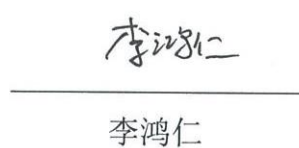 李鸿仁
李鸿仁